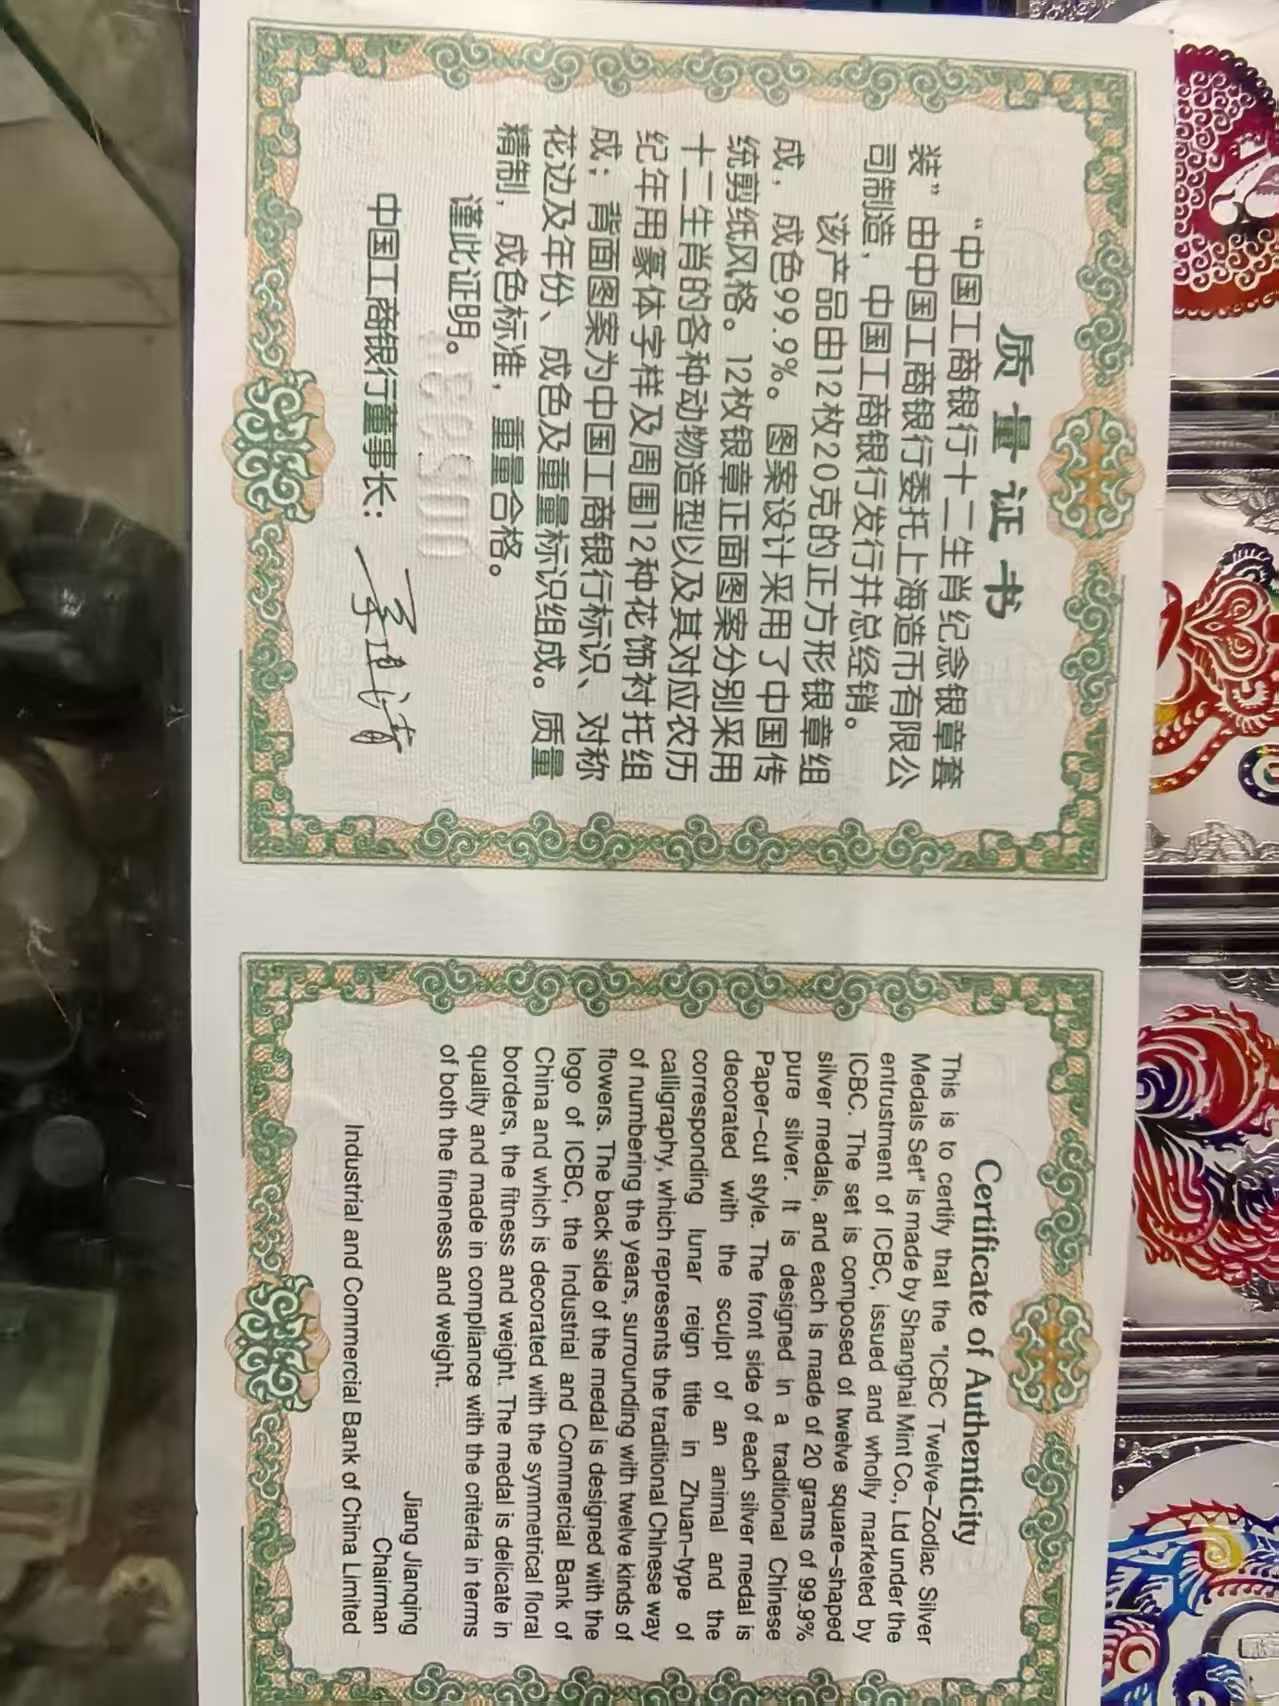 质量证书
“中国工商银行十二生肖纪念银章套
装”由中国工商银行委托上海造币有限公
司制造，中国工商银行发行并总经销。
该产品由12枚20克的正方形银章组
成，成色99.9%。图案设计采用了中国传
统剪纸风格。12枚银章正面图案分别采用
十二生肖的各种动物造型以及其对应农历
纪年用篆体字样及周围12种花饰衬托组
成；背面图案为中国工商银行标识、对称
花边及年份、成色及重量标识组成。质量
精制，成色标准，重量合格。
谨此证明。
中国工商银行董事长：
Certificate of Authenticity
This is to certify that the "ICBC Twelve-Zodiac Silver
Medals Set" is made by Shanghai Mint Co., Ltd under the
entrustment of ICBC, issued and wholly marketed by
ICBC. The set is composed of twelve square-shaped
silver medals, and each is made of 20 grams of 99.9%
pure silver. It is designed in a traditional Chinese
Paper-cut style. The front side of each silver medal is
decorated with the sculpt of an animal and the
corresponding lunar reign title in Zhuan-type of
calligraphy, which represents the traditional Chinese way
of numbering the years, surrounding with twelve kinds of
flowers. The back side of the medal is designed with the
logo of ICBC, the Industrial and Commercial Bank of
China and which is decorated with the symmetrical floral
borders, the fitness and weight. The medal is delicate in
quality and made in compliance with the criteria in terms
of both the fineness and weight.
Jiang Jianqing
Chairman
Industrial and Commercial Bank of China Limited